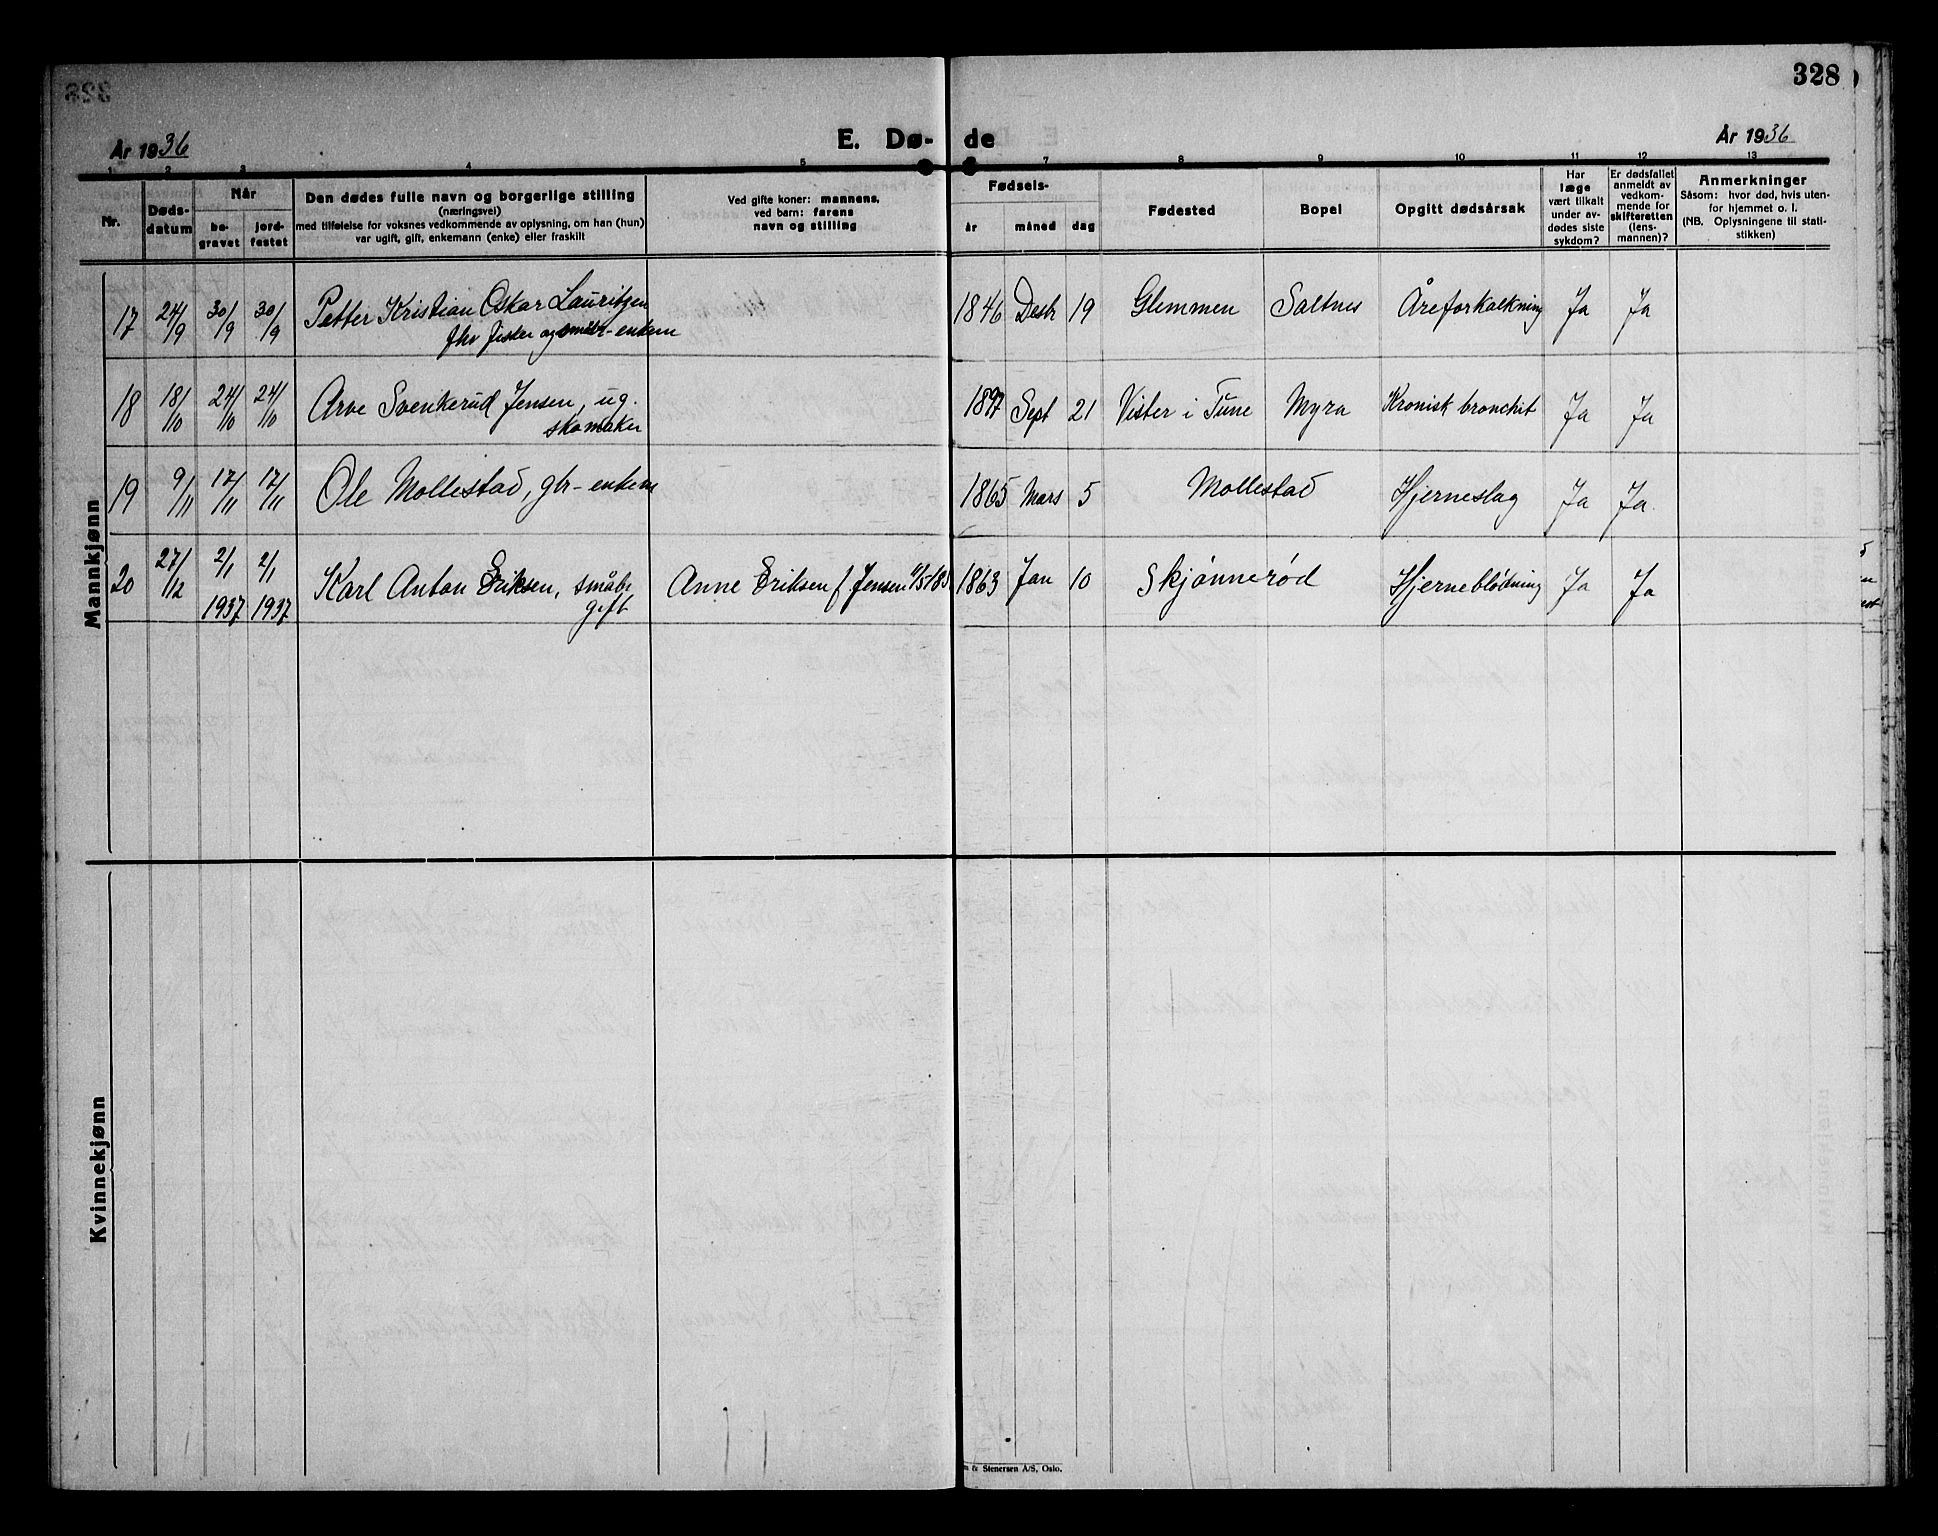 328
År 1936
E. Dø- de
År 1936
1 2 3 4 5 7 8 9 10 11 12 13
Nr.
Døds-
datum
Når
be-
gravet
jord-
festet
Den dødes fulle navn og borgerlige stilling
(næringsvei)
med tilføielse for voksnes vedkommende av oplysning, om han (hun)
var ugift, gift, enkemann (enke) eller fraskilt
Ved gifte koner: mannens,
ved barn: farens
navn og stilling
Fødsels-
år måned dag
Fødested
Bopel
Opgitt dødsårsak
Har
læge
vært tilkalt
under av-
dødes siste
sykdom?
Er dødsfallet
anmeldt av
vedkom-
mende for
skifteretten
(lens-
mannen)?
Anmerkninger
Såsom: hvor død, hvis uten-
for hjemmet o. l.
(NB. Oplysningene til stati-
stikken)
Mannkjønn
17 24/9 30/9 30/9 Petter Kristian Oskar Lauritzen 1846 Desbr 19 Glemmen Saltnes Åreforkalkning Ja Ja
fhv fisker og smør-enkem
18 18/10 24/10 24/10 Arve Svenkerud Jensen, ug. 1897 Sept 21 Vister i Tune Myra Kronisk bronchit Ja Ja
skomaker
19 9/11 17/11 17/11 Ole Mollestad, gbr-enkem 1865 Mars 5 Mollestad Hjerneslag Ja Ja.
20 27/12 2/1 2/1 Karl Anton Eriksen, småbr Anne Eriksen f. Jensen 1863 Jan 10 Skjønnerød Hjerneblødning Ja Ja
1937 1937 gift
Kvinnekjønn
& Stenersen A/S, Oslo.